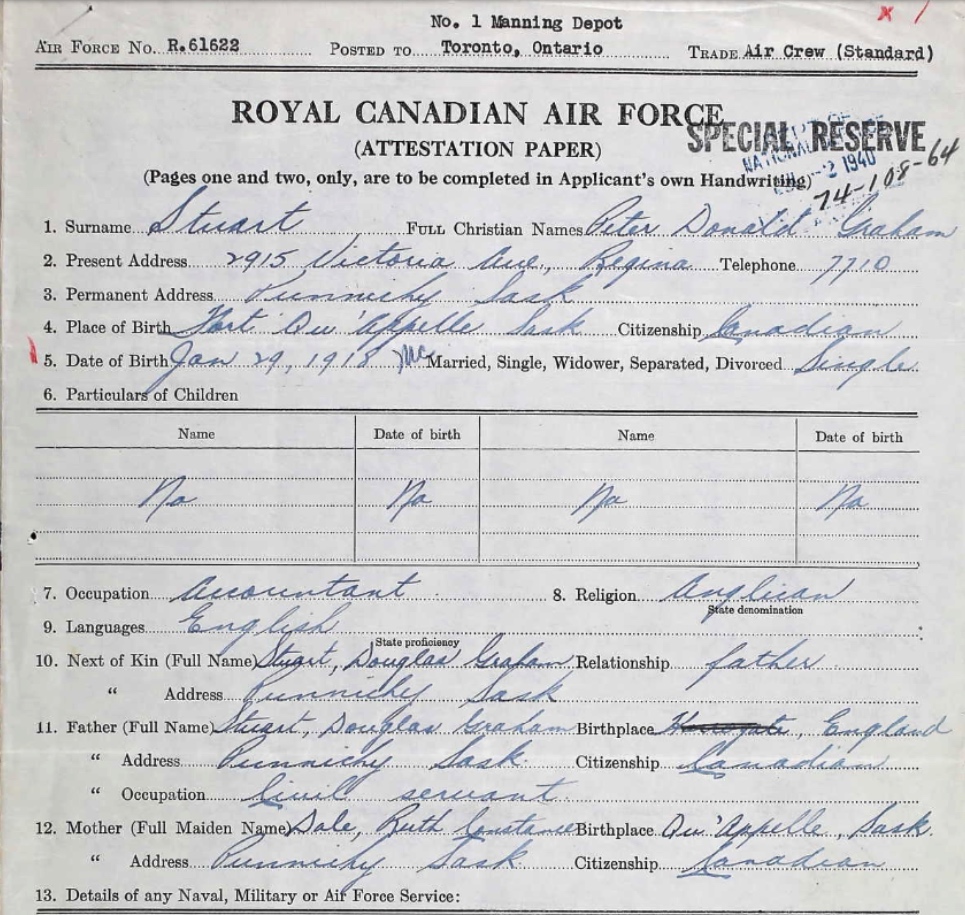 No. 1 Manning Depot
AIR FORCE NO. R.61622 POSTED TO Toronto, Ontario TRADE Air Crew (Standard)
ROYAL CANADIAN AIR FORCE
SPECIAL RESERVE
(ATTESTATION PAPER)
2 1940
74-108-64
(Pages one and two, only, are to be completed in Applicant's own Handwriting)
1. Surname Stuart FULL Christian Names Peter Donald Graham
2. Present Address 2915 Victoria Ave., Regina Telephone 7710
3. Permanent Address Punnichy Sask
4. Place of Birth Fort Qu'Appelle Sask Citizenship Canadian
5. Date of Birth Jan 29, 1918 Married, Single, Widower, Separated, Divorced Single
6. Particulars of Children
Name Date of birth Name Date of birth
No No No No
7. Occupation Accountant 8. Religion Anglican
State denomination
9. Languages English
State proficiency
10. Next of Kin (Full Name) Stuart, Douglas Graham Relationship father
" Address Punnichy Sask
11. Father (Full Name) Stuart, Douglas Graham Birthplace , England
" Address Punnichy Sask. Citizenship Canadian
" Occupation Civil servant
12. Mother (Full Maiden Name) Dale, Ruth Constance Birthplace Qu'Appelle, Sask.
" Address Punnichy Sask Citizenship Canadian
13. Details of any Naval, Military or Air Force Service: